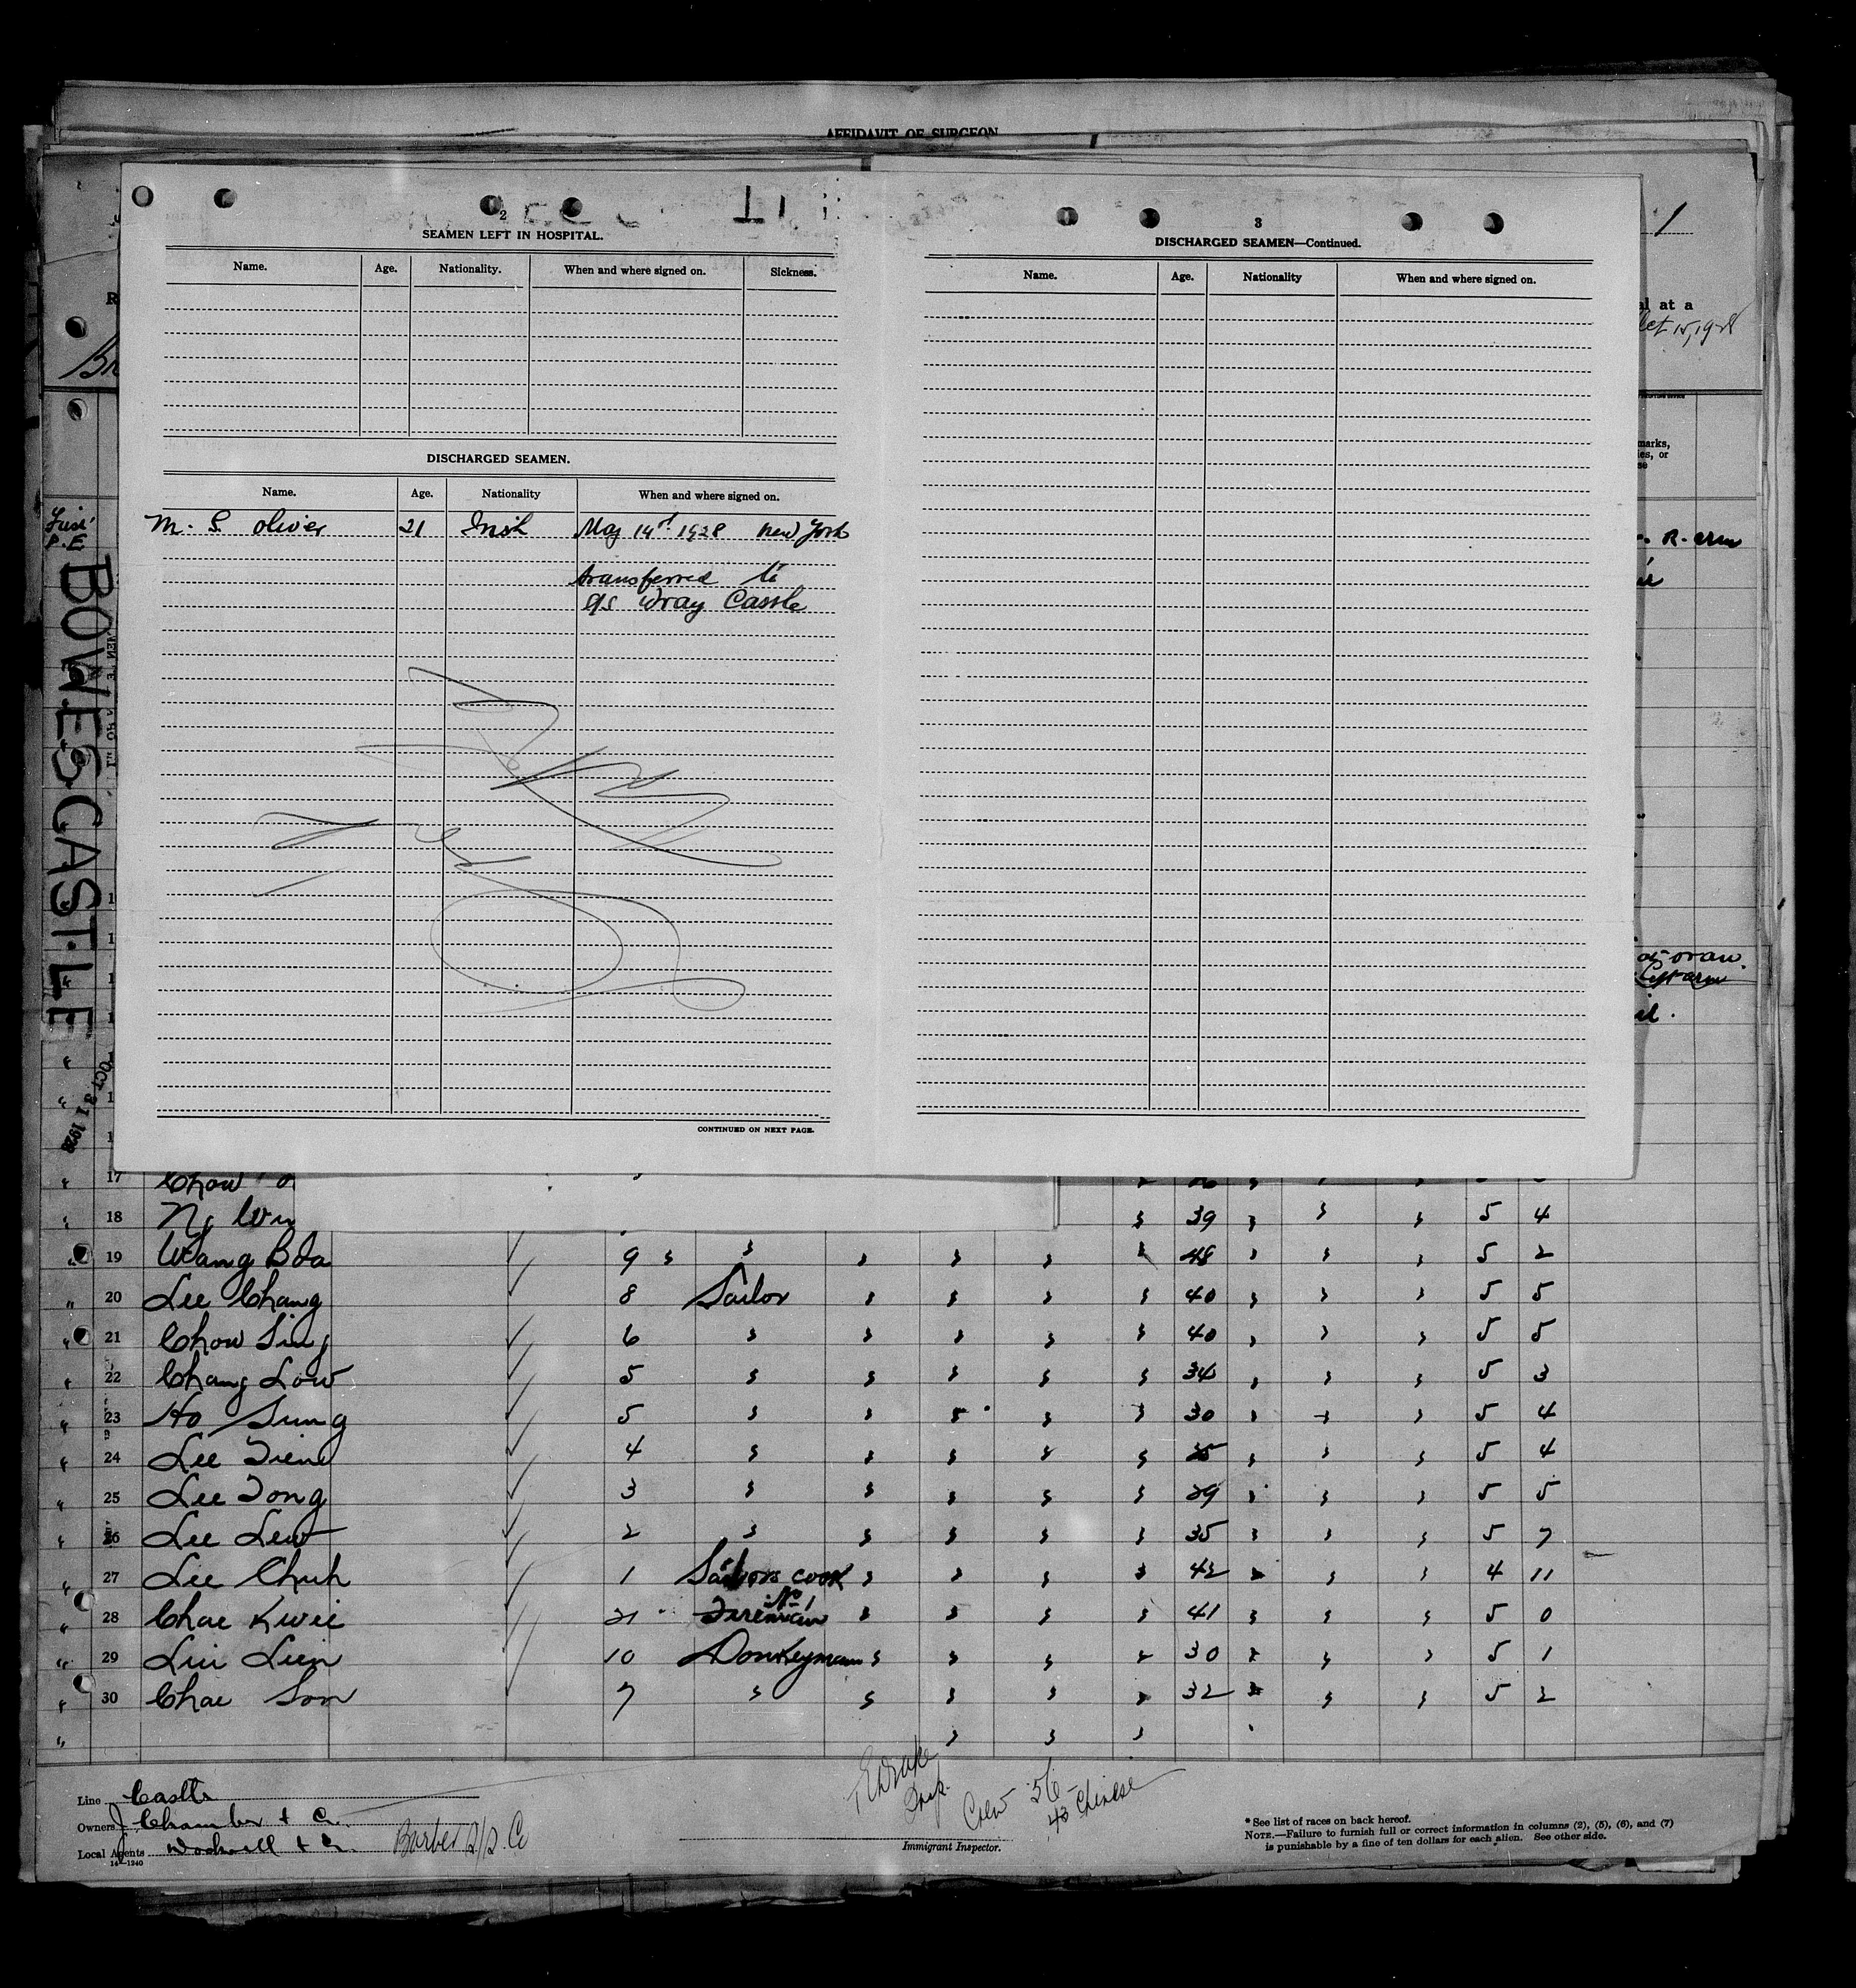 AFFIDAVIT OF SURGEON
2
SEAMEN LEFT IN HOSPITAL.
Name. Age. Nationality. When and where signed on. Sickness.
DISCHARGED SEAMEN.
Name. Age. Nationality When and where signed on.
M. S. Oliver 21 Irish May 14th 1928 New York
transferred to
S/S Wray Castle
CONTINUED ON NEXT PAGE.
3
DISCHARGED SEAMEN—Continued.
Name. Age. Nationality When and where signed on.
1
al at a
Oct 15, 1928
marks,
ies, or
se
R. arm
BOWES CASTLE
OCT 31 1928
17 Chow
18 Ng 39 5 4
19 Wang Boa 9 48 5 2
20 Lee Chang 8 Sailor 40 5 5
21 Chow Sing 6 40 5 5
22 Chang Low 5 34 5 3
23 Ho Sung 5 30 5 4
24 Lee Tien 4 5 4
25 Lee Tong 3 29 5 5
26 Lee Lew 2 35 5 7
27 Lee Chuh 1 Sailors Cook 42 4 11
28 Chae Kwei 21 No 1 Fireman 41 5 0
29 Liu Lien 10 Donkeyman 30 5 1
30 Chae Son 7 32 5 2
Line Castle
Owners J Chambers & Co.
Local Agents
14—1240
Barber S/S. Co
Crew 56
43 Chinese
Immigrant Inspector.
* See list of races on back hereof.
NOTE.—Failure to furnish full or correct information in columns (2), (5), (6), and (7)
is punishable by a fine of ten dollars for each alien. See other side.